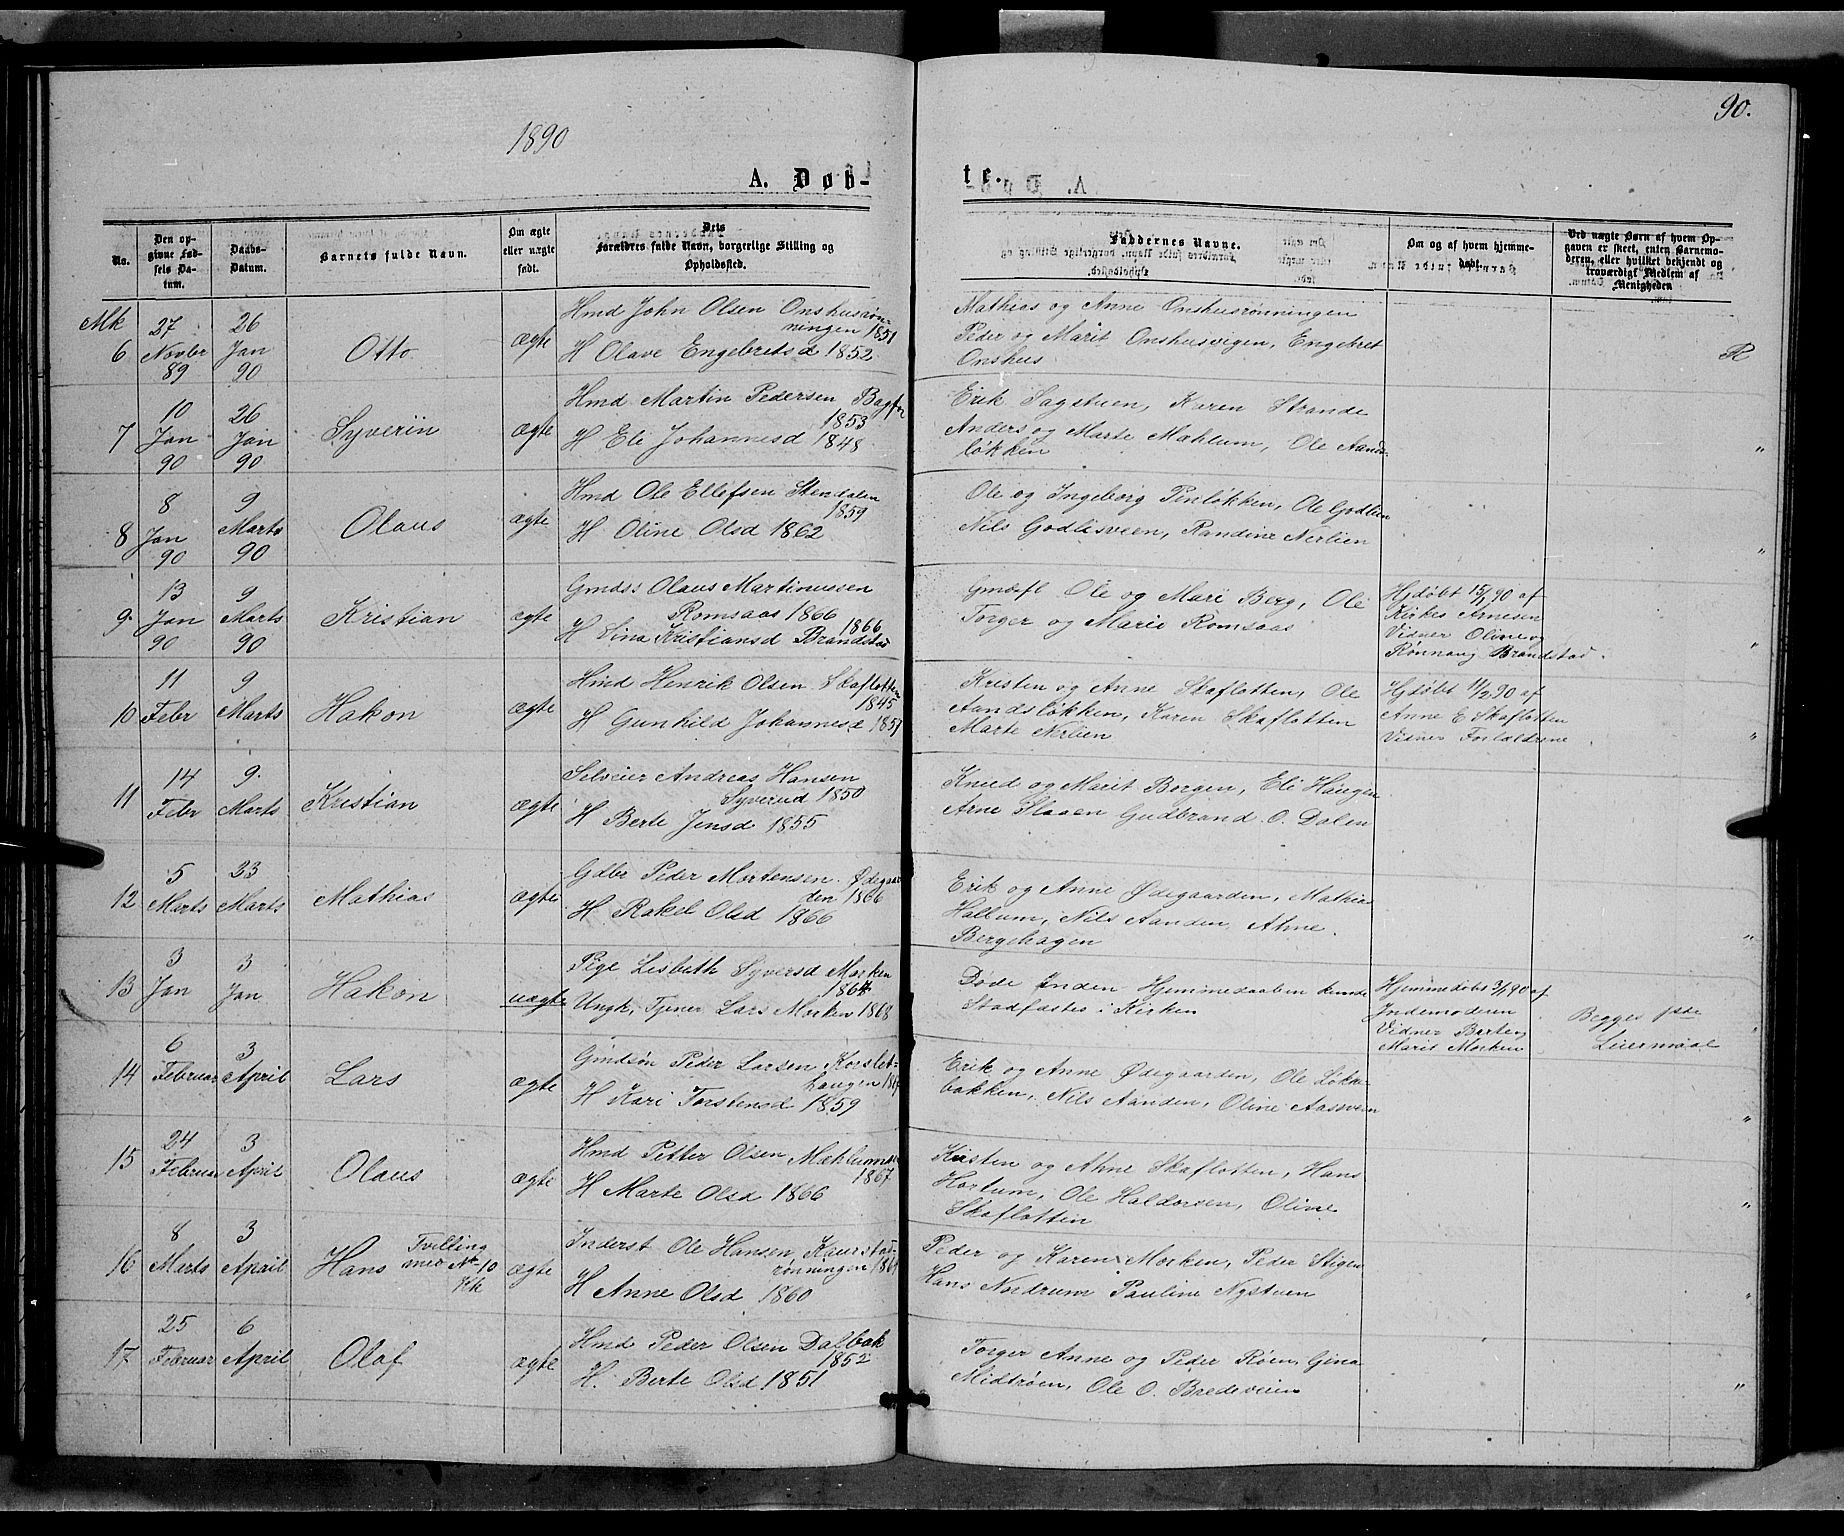 90.
1890
A. Døb-
te.
No.
Den op-
givne Fød-
sels Da-
tum.
Daabs-
Datum.
Barnets fulde Navn.
Om ægte
eller uægte
født.
Dets
Forældres fulde Navn, borgerlige Stilling og
Opholdssted.
Faddernes Navne.
Om og af hvem hjemme-
døbt.
Ved uægte Børn af hvem Op-
gaven er skeet, enten Barnemo-
deren, eller hvilket bekjendt og
troværdigt Medlem af
Menigheden
Mk
6
27
Novbr
89
26
Jan
90
Otto
ægte
Hmd John Olsen Onshusrøn-
ningen 1851
H Olave Engebretsd 1852
Mathias og Anne Onshusrønningen
Peder og Marit Onshusvigen, Engebret
Onshus
R
7
10
Jan
90
26
Jan
90
Syverin
ægte
Hmd Martin Pedersen
1853
H Eli Johannesd 1848
Erik Sagstuen, Karen Strande
Anders og Marte Mæhlum, Ole Aands-
løkken
"
8
8
Jan
90
9
Marts
90
Olaus
ægte
Hmd Ole Ellefsen Stendalen
1859
H Oline Olsd 1862
Ole og Ingeborg Pinløkken, Ole Godlien
Nils Godlisveen, Randine Nerlien
"
9
13
Jan
90
9
Marts
90
Kristian
ægte
Gmdss Olaus Martinussen
Romsaas 1866
1866
H Lina Kristiansd Brandstad
Gmdsfl Ole og Mari Berg, Ole
Torger og Marie Romsaas
Hjdøbt 15/1 90 af
Kirkes Arnesen
Vidner Oline og
Rønnaug Brandstad.
"
10
11
Febr
9
Marts
Hakon
ægte
Hmd Henrik Olsen Skaflotten
1845
H Gunhild Johannesd 1851
Kristen og Anne Skaflotten, Ole
Aandsløkken, Karen Skaflotten
Marte Nerlien
Hjdøbt 11/2 90 af
Anne E Skaflotten
Vidner Forældrene
"
11
14
Febr
9
Marts
Kristian
ægte
Selveier Andreas Hansen
Syverud 1850
H Berte Jensd 1855
Knud og Marit Borgen, Eli Haugen
Arne Slaaen Gudbrand O. Dalen
12
5
Marts
23
Marts
Mathias
ægte
Gdbr Peder Mortensen Ødegaar
den 1866
H Rakel Olsd 1866
Erik og Anne Ødegaarden, Mathias
Hallum, Nils Aanden, Ahne
Bergehagen
"
13
3
Jan
3
Jan
Hakon
uægte
Pige Lisbeth Syversd Morken
1864
Ungk, Tjener Lars Morken 1868
Døde inden Hjemmedaaben kunde
Stadfæstes i Kirken
Hjemmedøbt 3/1 90 af
Jordemoderen
Vidner Berte og
Marit Morken
Begges 1ste
Leiermaal
"
14
6
Februar
3
April
Lars
ægte
Gmdsøn Peder Larsen Korslet-
haugen
H Kari Torstensd 1859
Erik og Anne Ødegaarden, Ole Løkke-
bakken, Nils Aanden, Oline Aassveen
"
15
24
Februar
3
April
Olaus
ægte
Hmd Petter Olsen Mæhlums
1867
H Marte Olsd 1866
Kristen og Ahne Skaflotten, Hans
Hørlum, Ole Haldorsen, Oline
Skaflotten
"
16
8
Marts
3
April
Hans
Tvilling
med No 10
Kk
ægte
Inderst Ole Hansen Kaurstad-
rønningen
H Anne Olsd 1860
Peder og Karen Morken, Peder Stigen
Hans Nordrum Pauline Nystuen
"
17
25
Februar
6
April
Olaf
ægte
Hmd Peder Olsen Dalbak
1852
H. Berte Olsd 1851
Torger Anne og Peder Røen, Gina
Midtrøen, Ole O. Bredeveien
"